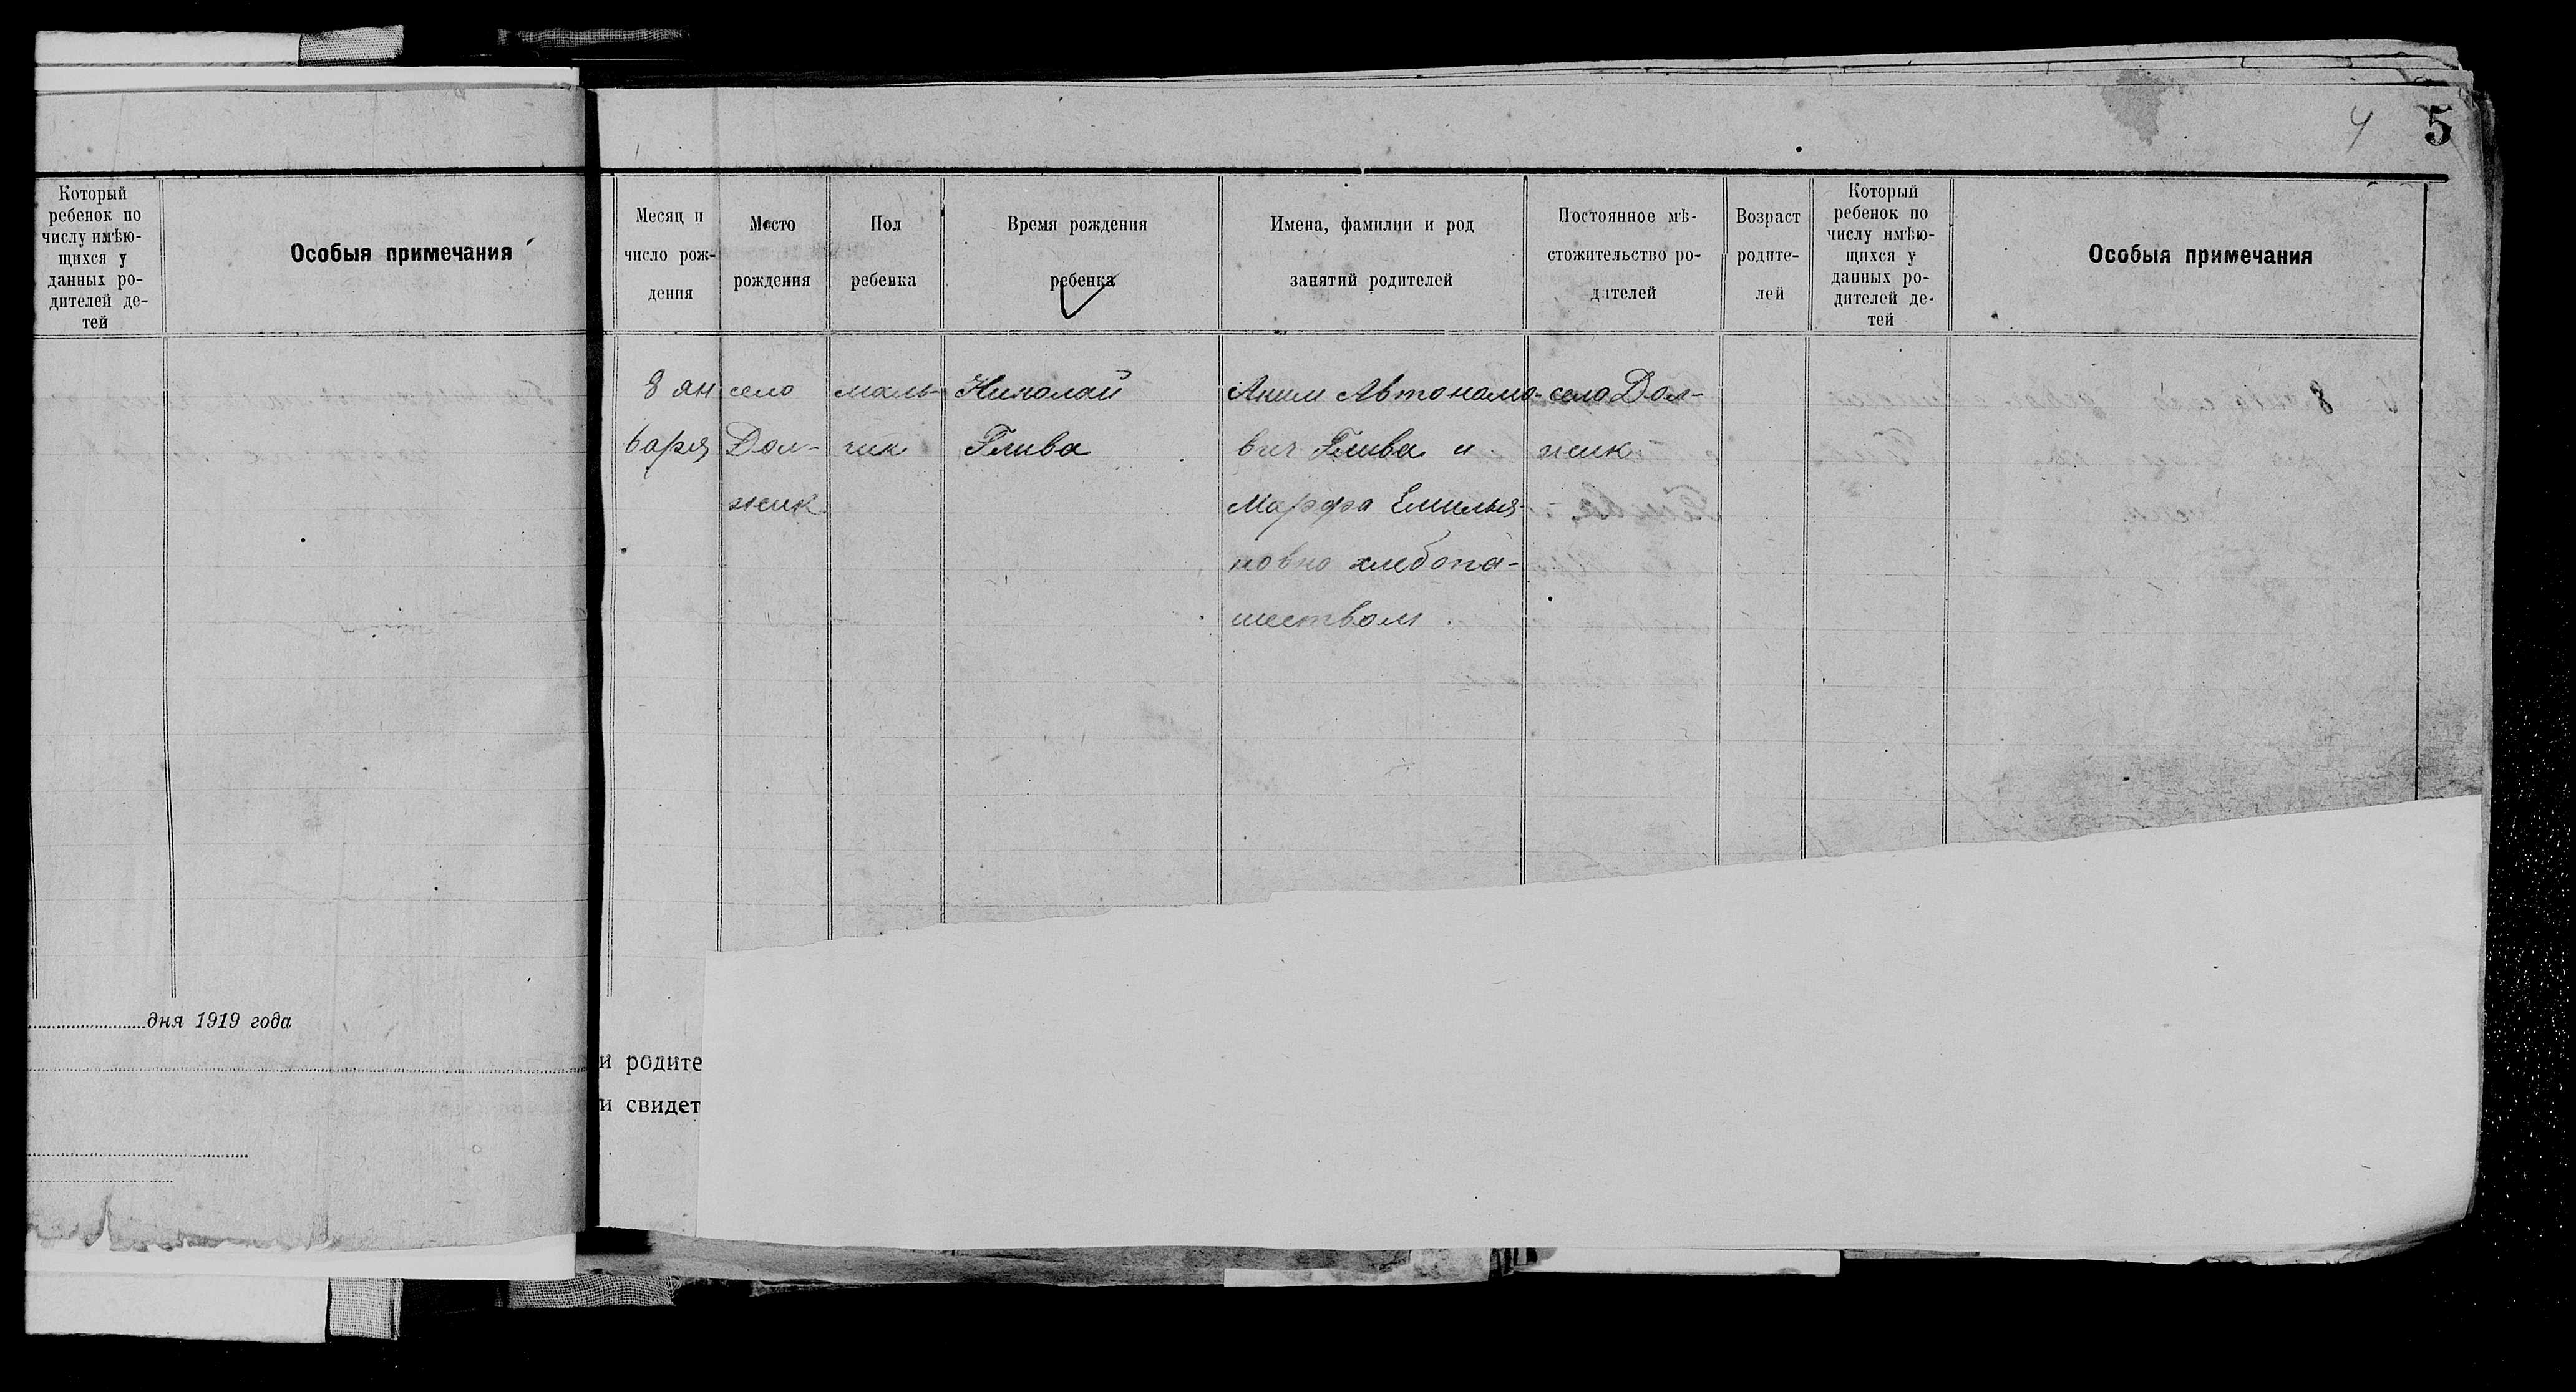 Который
ребенок по
числу имѣю-
щихся у
данных ро-
дителей де-
тей
Особыя примечания
дня 1919 года
4 5
Месяц и
число рож-
дения
Место
рождения
Пол
ребенка
Время рождения
ребенка
Имена, фамилии и род
занятий родителей
Постоянное мѣ-
стожительство ро-
дителей
Возраст
родите-
лей
Который
ребенок по
числу имѣю-
щихся у
данных ро-
дителей де-
тей
Особыя примечания
8 ян
варя
село
Дол-
жик
маль-
чик
Николай
Глива
Аким Автономо-
вич Глива и
Марфа Емилья-
новна хлебопа-
шеством.
село Дол-
жик
и родите
и свидет